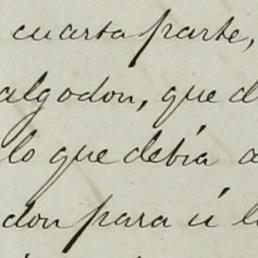 cuarta parte,
algodon, que d
lo que debia a
don para ú l